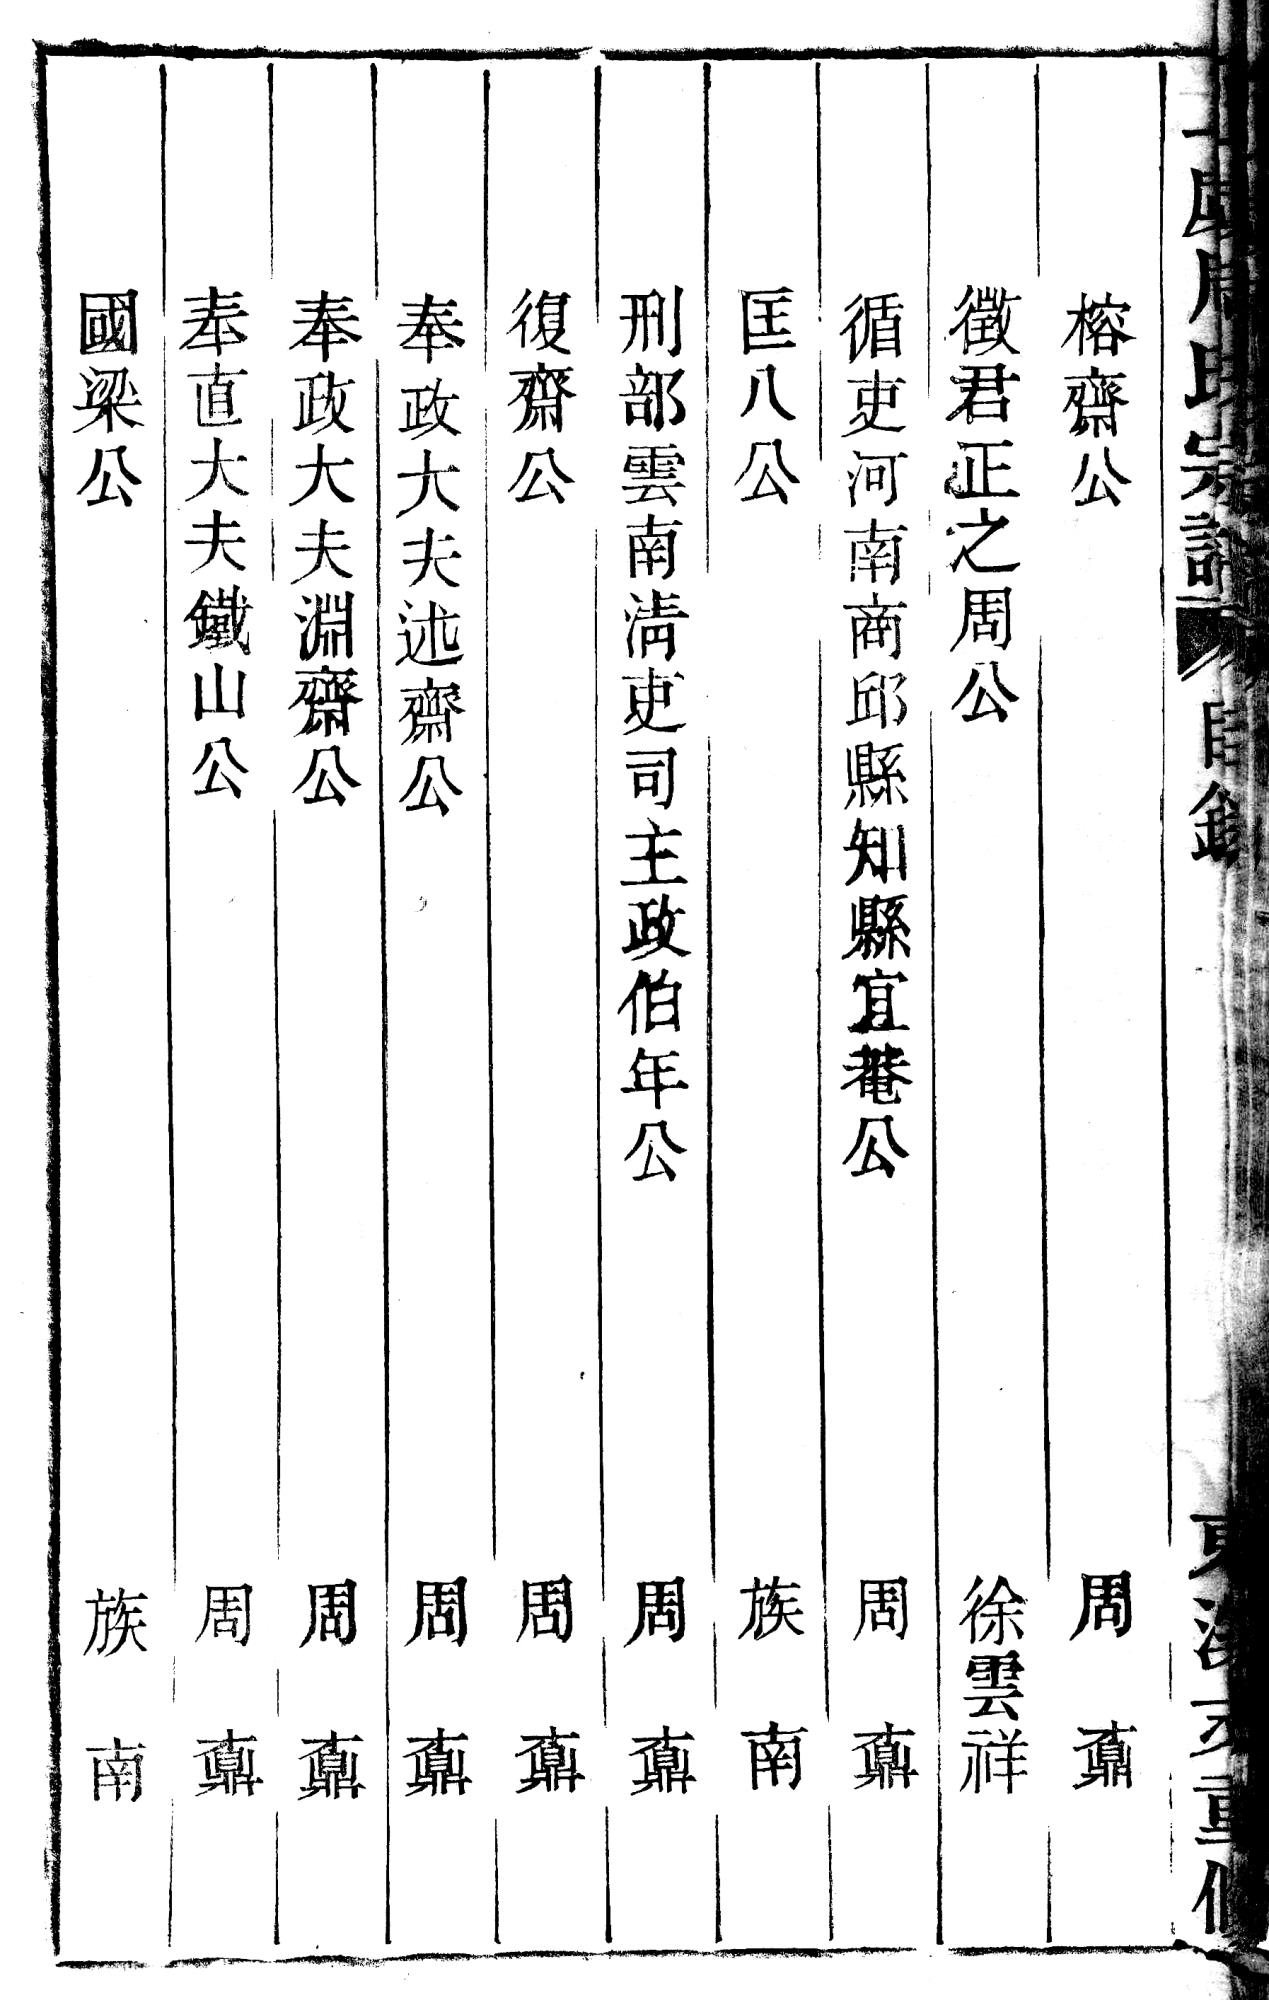 周氏宗譜 目錄 重修
榕齋公 周鼐
徵君正之周公 徐雲祥
循吏河南商邱縣知縣宜菴公 周鼐
匡八公 族南
刑部雲南淸吏司主政伯年公 周鼐
復齋公 周鼐
奉政大夫述齋公 周鼐
奉政大夫淵齋公 周鼐
奉直大夫鐵山公 周鼐
國梁公 族南